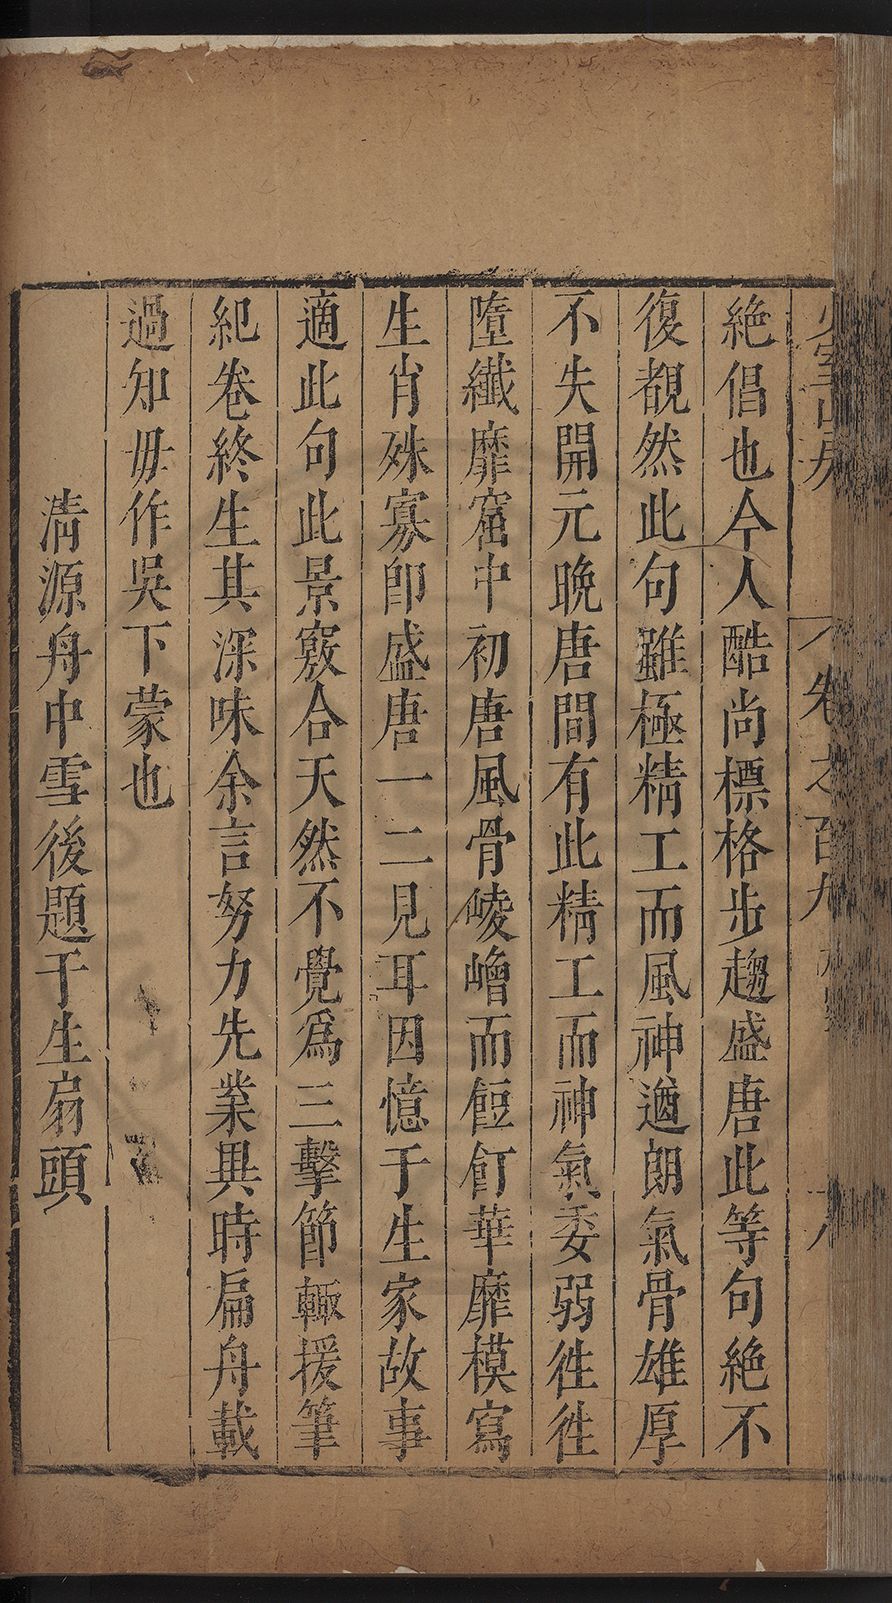 絶倡也今人酷尚標格步趨盛唐此等句絶不
復覩然此句雖極精工而風神遒朗氣骨雄厚
不失開元晩唐間有此精工而神氣委弱徃徃
墮纖靡窟中初唐風骨崚嶒而飣餖華靡模寫
生肖殊寡卽盛唐一二見耳因憶于生家故事
適此句此景竅合天然不覺爲三擊節輙援筆
紀卷終生其深味余言努力先業異時扁舟載
過知毋作吳下蒙也
清源舟中雪後題于生扇頭
卷之百九